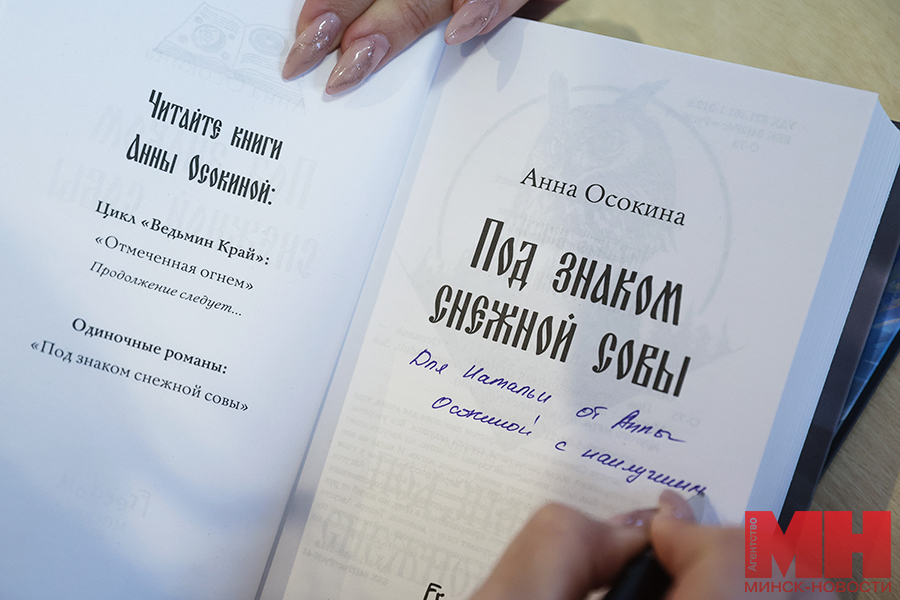 Читайте книги
Анны Осокиной:
Цикл «Ведьмин Край»:
«Отмеченная огнем»
Продолжение следует...
Одиночные романы:
«Под знаком снежной совы»
Анна Осокина
Под знаком
снежной совы
Для Натальи от Анны
Осокиной с наилучшим
Агентство
МН
МИНСК-НОВОСТИ